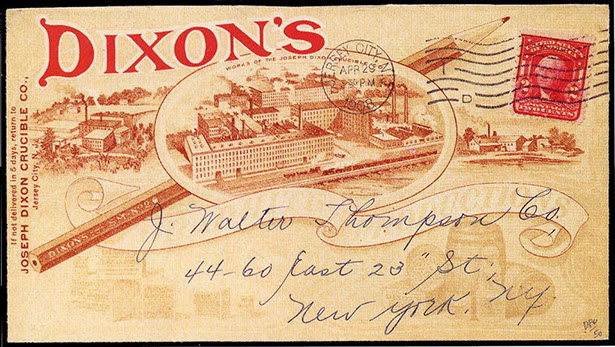 DIXON'S
WORKS OF THE JOSEPH DIXON CRUCIBLE CO.
JERSEY CITY, N.J.
APR 29
PM
1905
D
If not delivered in 5 days, return to
JOSEPH DIXON CRUCIBLE CO.,
Jersey City, N. J.
DIXON'S SM No2
J. Walter Thompson Co,
44-60 East 23" St,
New York. NY.